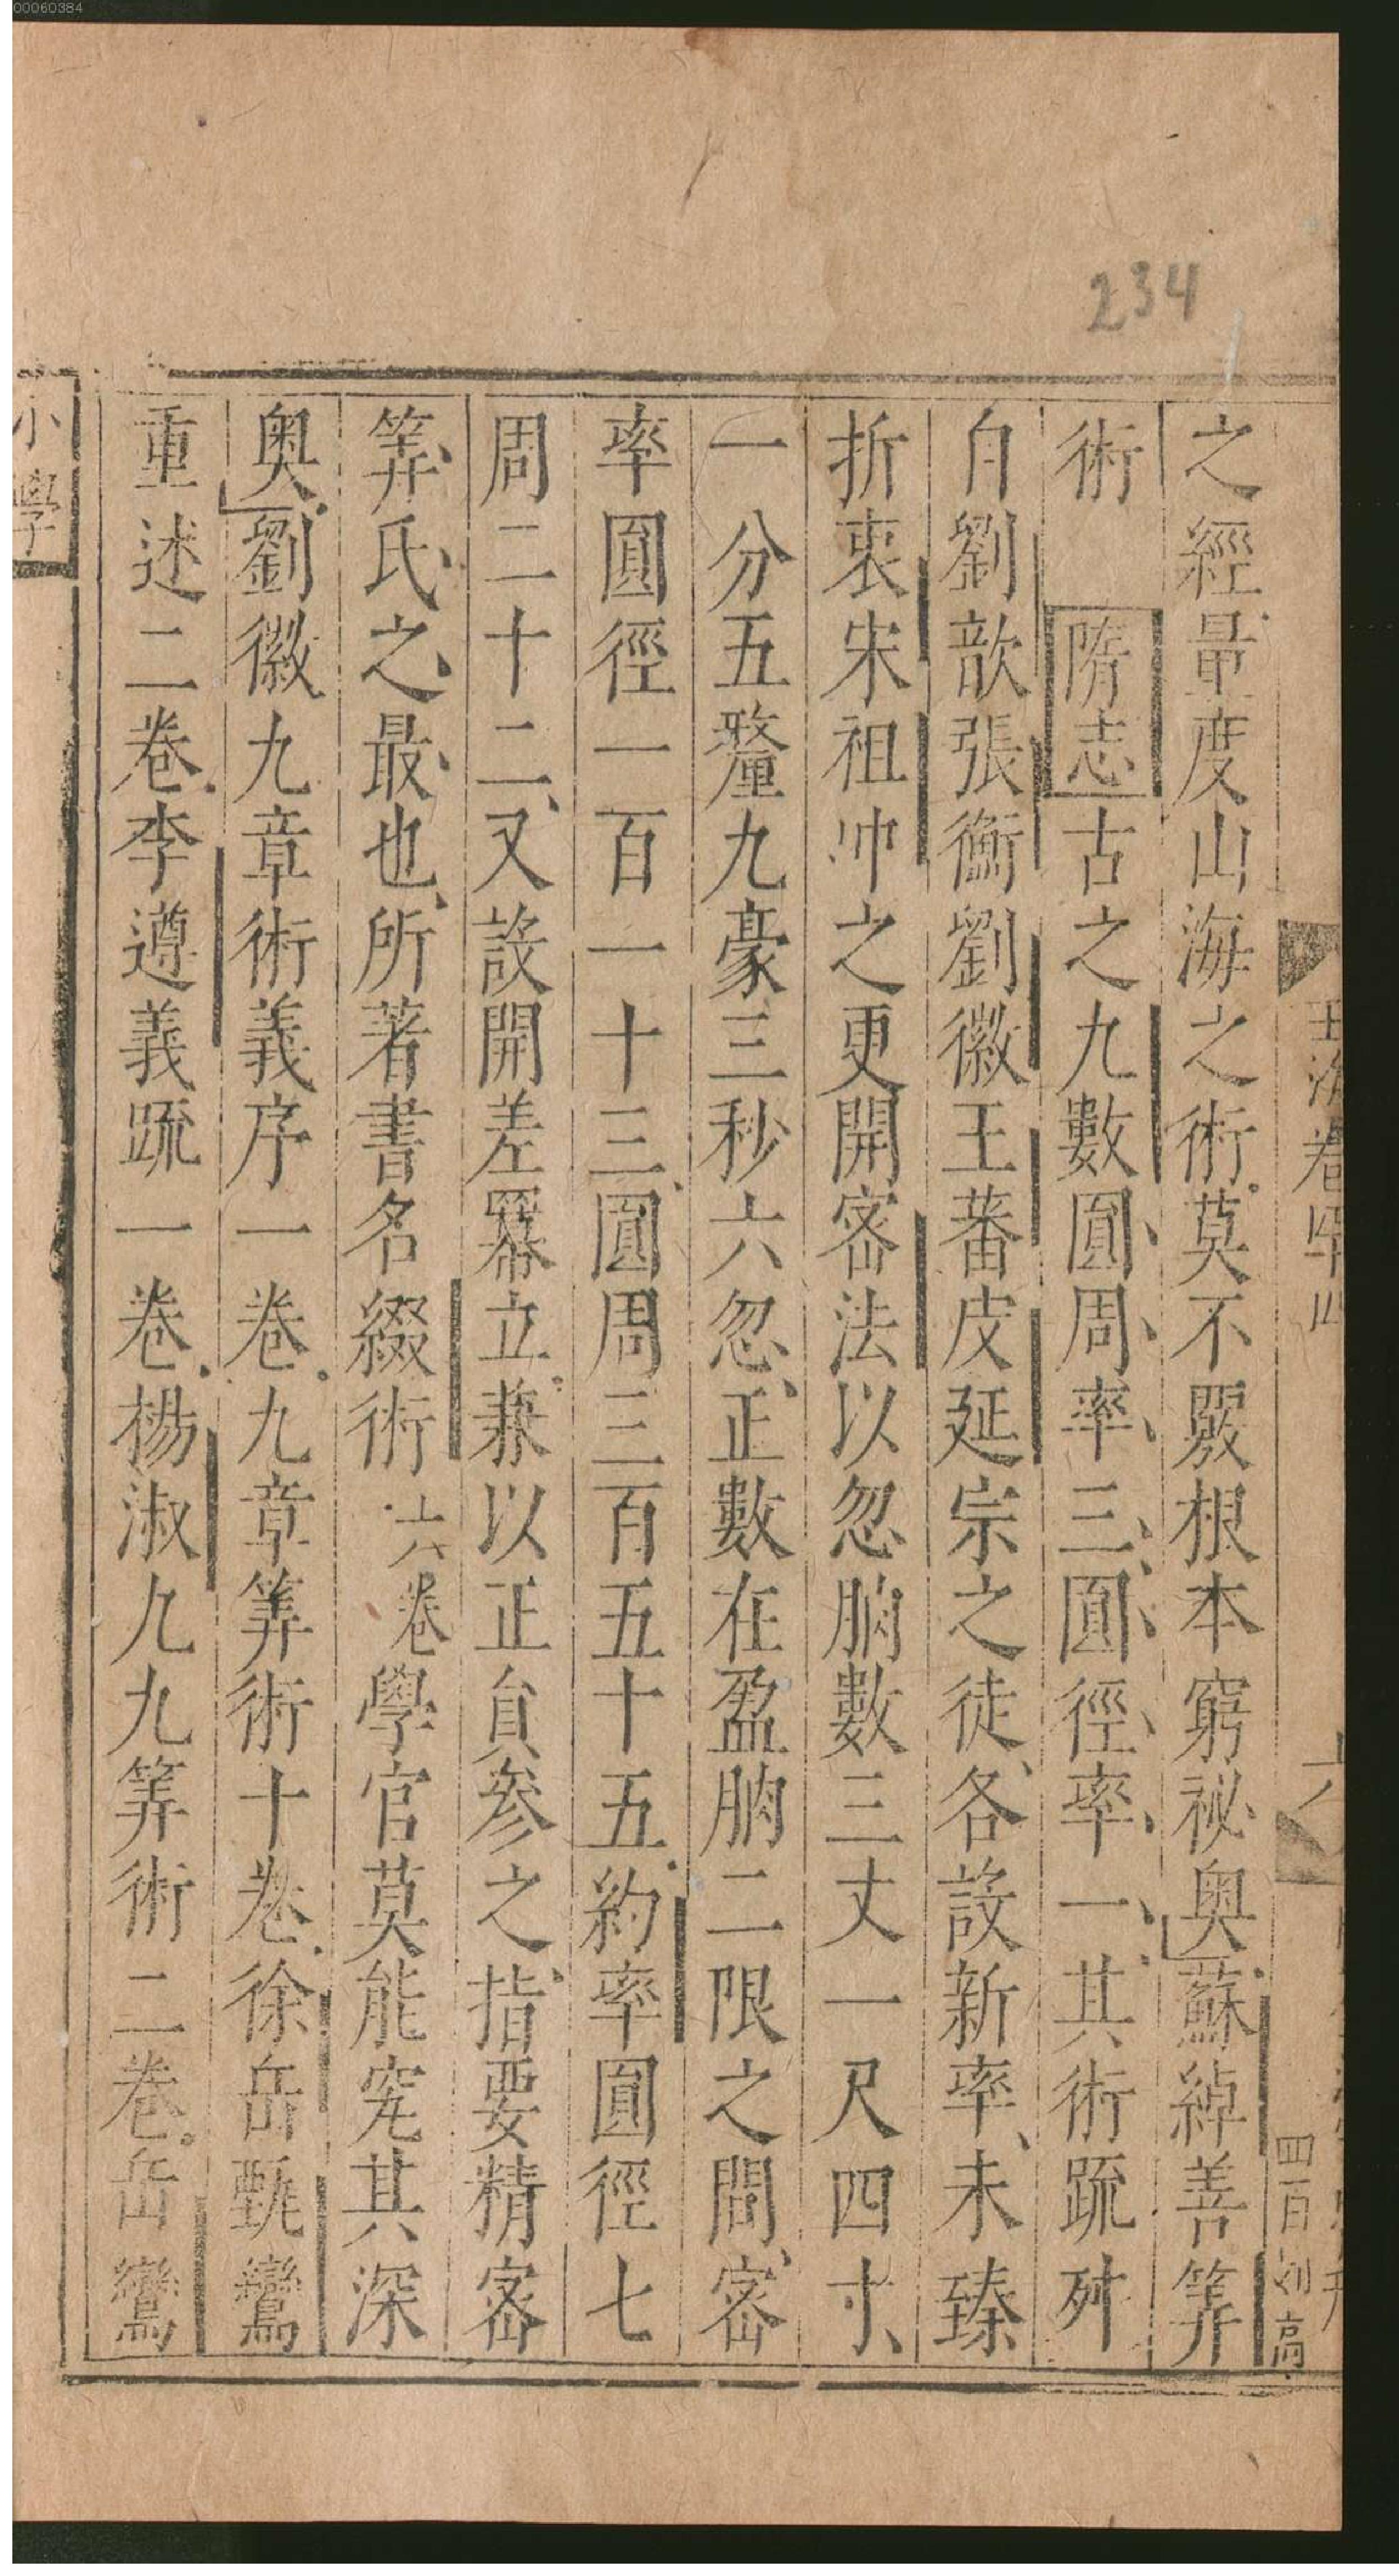 00060384
234
之經量度山海之術莫不覈根本窮祕奧蘇綽善筭
術 隋志古之九數圓周率三圓徑率一其術疏舛
自劉歆張衡劉徽王蕃皮延宗之徒各設新率未臻
折衷宋祖冲之更開密法以忽朒數三丈一尺四寸
一分五釐九豪三秒六忽正數在盈朒二限之間密
率圓徑一百一十三圓周三百五十五約率圓徑七
周二十二又設開差羃立兼以正負參之指要精密
筭氏之最也所著書名綴術六卷學官莫能究其深
奧劉徽九章術義序一卷九章筭術十卷徐岳甄鸞
重述二卷李遵義疏一卷楊淑九九筭術二卷岳鸞
小學
玉海卷四十四
六
四百
高